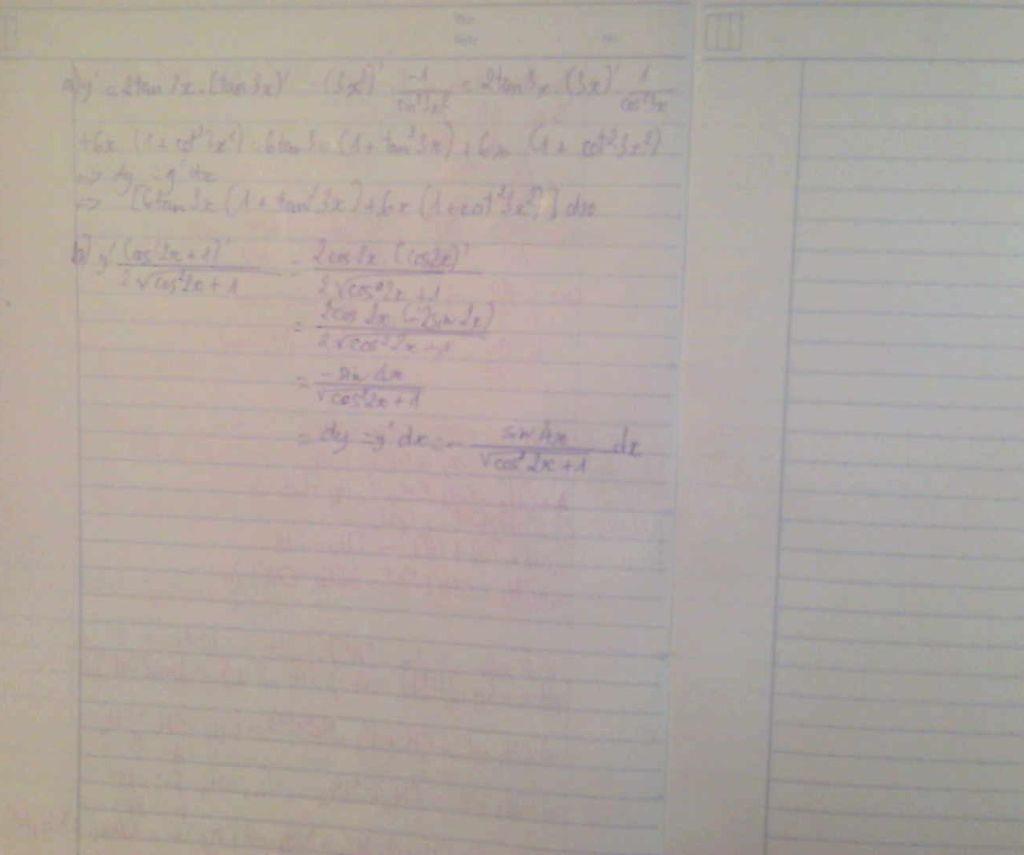 a) y' = 2tan 3x . (tan 3x)' - (3x²)' -1/sin²3x² = 2tan 3x . (3x)' 1/cos²3x
+ 6x (1 + cot²3x²) = 6tan 3x (1 + tan²3x) + 6x (1 + cot²3x²)
=> dy = y'dx
=> [6tan 3x (1 + tan²3x) + 6x (1 + cot²3x²)] dx
b) y' (cos²2x + 1)' / 2√cos²2x + 1 = 2cos2x . (cos2x)' / 2√cos²2x + 1
= 2cos 2x . (-2sin 2x) / 2√cos²2x + 1
= -sin 4x / √cos²2x + 1
= dy = y'dx = - sin 4x / √cos²2x + 1 dx